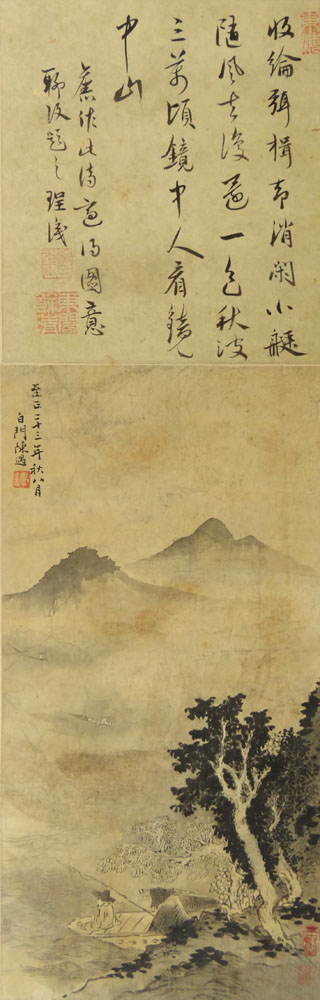 收綸弭楫却消閑小艇
隨風去復還一色秋波
三萬頃鏡中人看鏡
中山
舊作此詩適得圖意
聊題之瑆識
至正二十三年秋八月
白門陳遇